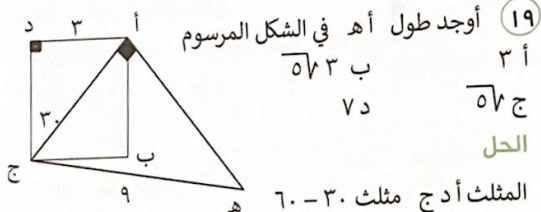 ١٩ أوجد طول أ هـ في الشكل المرسوم
أ ٣
ب ٣ √٥
ج √٥
د ٧
الحل
المثلث أ د ج مثلث ٣٠ – ٦٠
د ٣ أ
٣٠
ج ب
٩ هـ